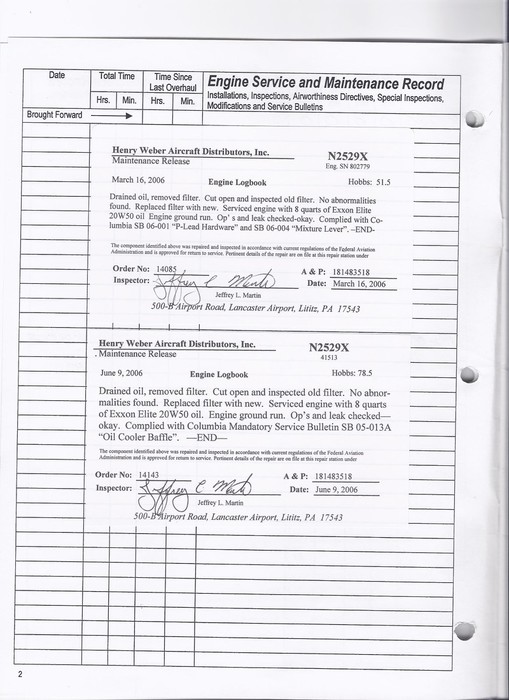 Date
Total Time
Time Since
Last Overhaul
Engine Service and Maintenance Record
Installations, Inspections, Airworthiness Directives, Special Inspections,
Modifications and Service Bulletins
Hrs. Min. Hrs. Min.
Brought Forward
Henry Weber Aircraft Distributors, Inc. N2529X
Maintenance Release Eng. SN 802779
March 16, 2006 Engine Logbook Hobbs: 51.5
Drained oil, removed filter. Cut open and inspected old filter. No abnormalities
found. Replaced filter with new. Serviced engine with 8 quarts of Exxon Elite
20W50 oil Engine ground run. Op's and leak checked-okay. Complied with Co-
lumbia SB 06-001 "P-Lead Hardware" and SB 06-004 "Mixture Lever". -END-
The component identified above was repaired and inspected in accordance with current regulations of the Federal Aviation
Administration and is approved for return to service. Pertinent details of the repair are on file at this repair station under
Order No: 14085 A & P: 181483518
Inspector: Jeffrey L Martin Date: March 16, 2006
Jeffrey L. Martin
500-B Airport Road, Lancaster Airport, Lititz, PA 17543
Henry Weber Aircraft Distributors, Inc. N2529X
Maintenance Release 41513
June 9, 2006 Engine Logbook Hobbs: 78.5
Drained oil, removed filter. Cut open and inspected old filter. No abnor-
malities found. Replaced filter with new. Serviced engine with 8 quarts
of Exxon Elite 20W50 oil. Engine ground run. Op's and leak checked—
okay. Complied with Columbia Mandatory Service Bulletin SB 05-013A
"Oil Cooler Baffle". —END—
The component identified above was repaired and inspected in accordance with current regulations of the Federal Aviation
Administration and is approved for return to service. Pertinent details of the repair are on file at this repair station under
Order No: 14143 A & P: 181483518
Inspector: Jeffrey L Martin Date: June 9, 2006
Jeffrey L. Martin
500-B Airport Road, Lancaster Airport, Lititz, PA 17543
2